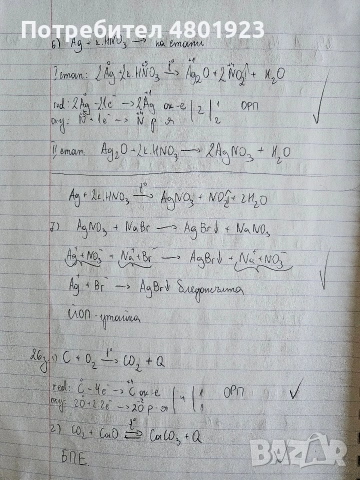 Потребител 4801923
6) Ag + к. HNO₃ → на етапи
I етап: 2Ag + 2к. HNO₃ →(t°) Ag₂O + 2NO₂↑ + H₂O
red: 2Ag - 2.1e⁻ → 2Ag ок-е | 2 | 1 ОРП
oxy: N + 1e⁻ → N р-я | 2
II етап Ag₂O + 2к. HNO₃ → 2AgNO₃ + H₂O
Ag + 2к. HNO₃ →(t°) AgNO₃ + NO₂↑ + H₂O
7) AgNO₃ + NaBr → AgBr↓ + NaNO₃
Ag⁺ + NO₃⁻ + Na⁺ + Br⁻ → AgBr↓ + Na⁺ + NO₃⁻
Ag⁺ + Br⁻ → AgBr↓ бледожълта
ЙОП - утайка
26з. 1) C + O₂ →(t°) CO₂ + Q
red: C - 4e⁻ → C ок-е | 4 | 1 ОРП
oxy: 2O + 2.2e⁻ → 2O р-я | 1
2) CO₂ + CaO ⇌(t°) CaCO₃ + Q
БПЕ
BAZAR